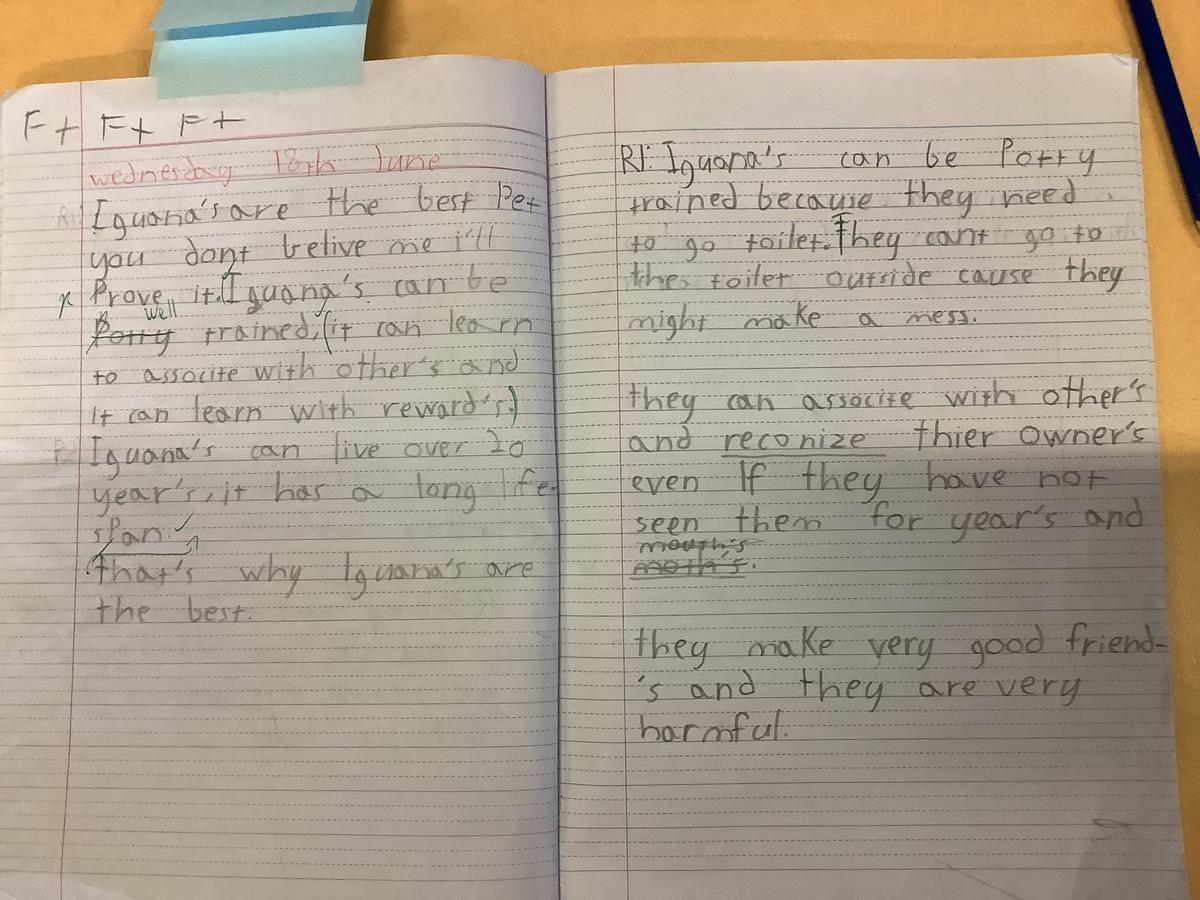 F+ F+ F+
wednesday 18th June
Iguana's are the best Pet
you dont belive me i'll
Prove it. Iguana's can be
Well
Potty trained, (it can learn
to associte with other's and
it can learn with reward's.)
Iguana's can live over 20
year's, it has a long life
span.
that's why Iguana's are
the best.
R1: Iguana's can be Potty
trained because they need
to go toilet. They cant go to
the toilet outside cause they
might make a mess.
they can associte with other's
and reconize thier owner's
even If they have not
seen them for year's and
mouth's
moth's.
they make very good friend-
's and they are very
harmful.